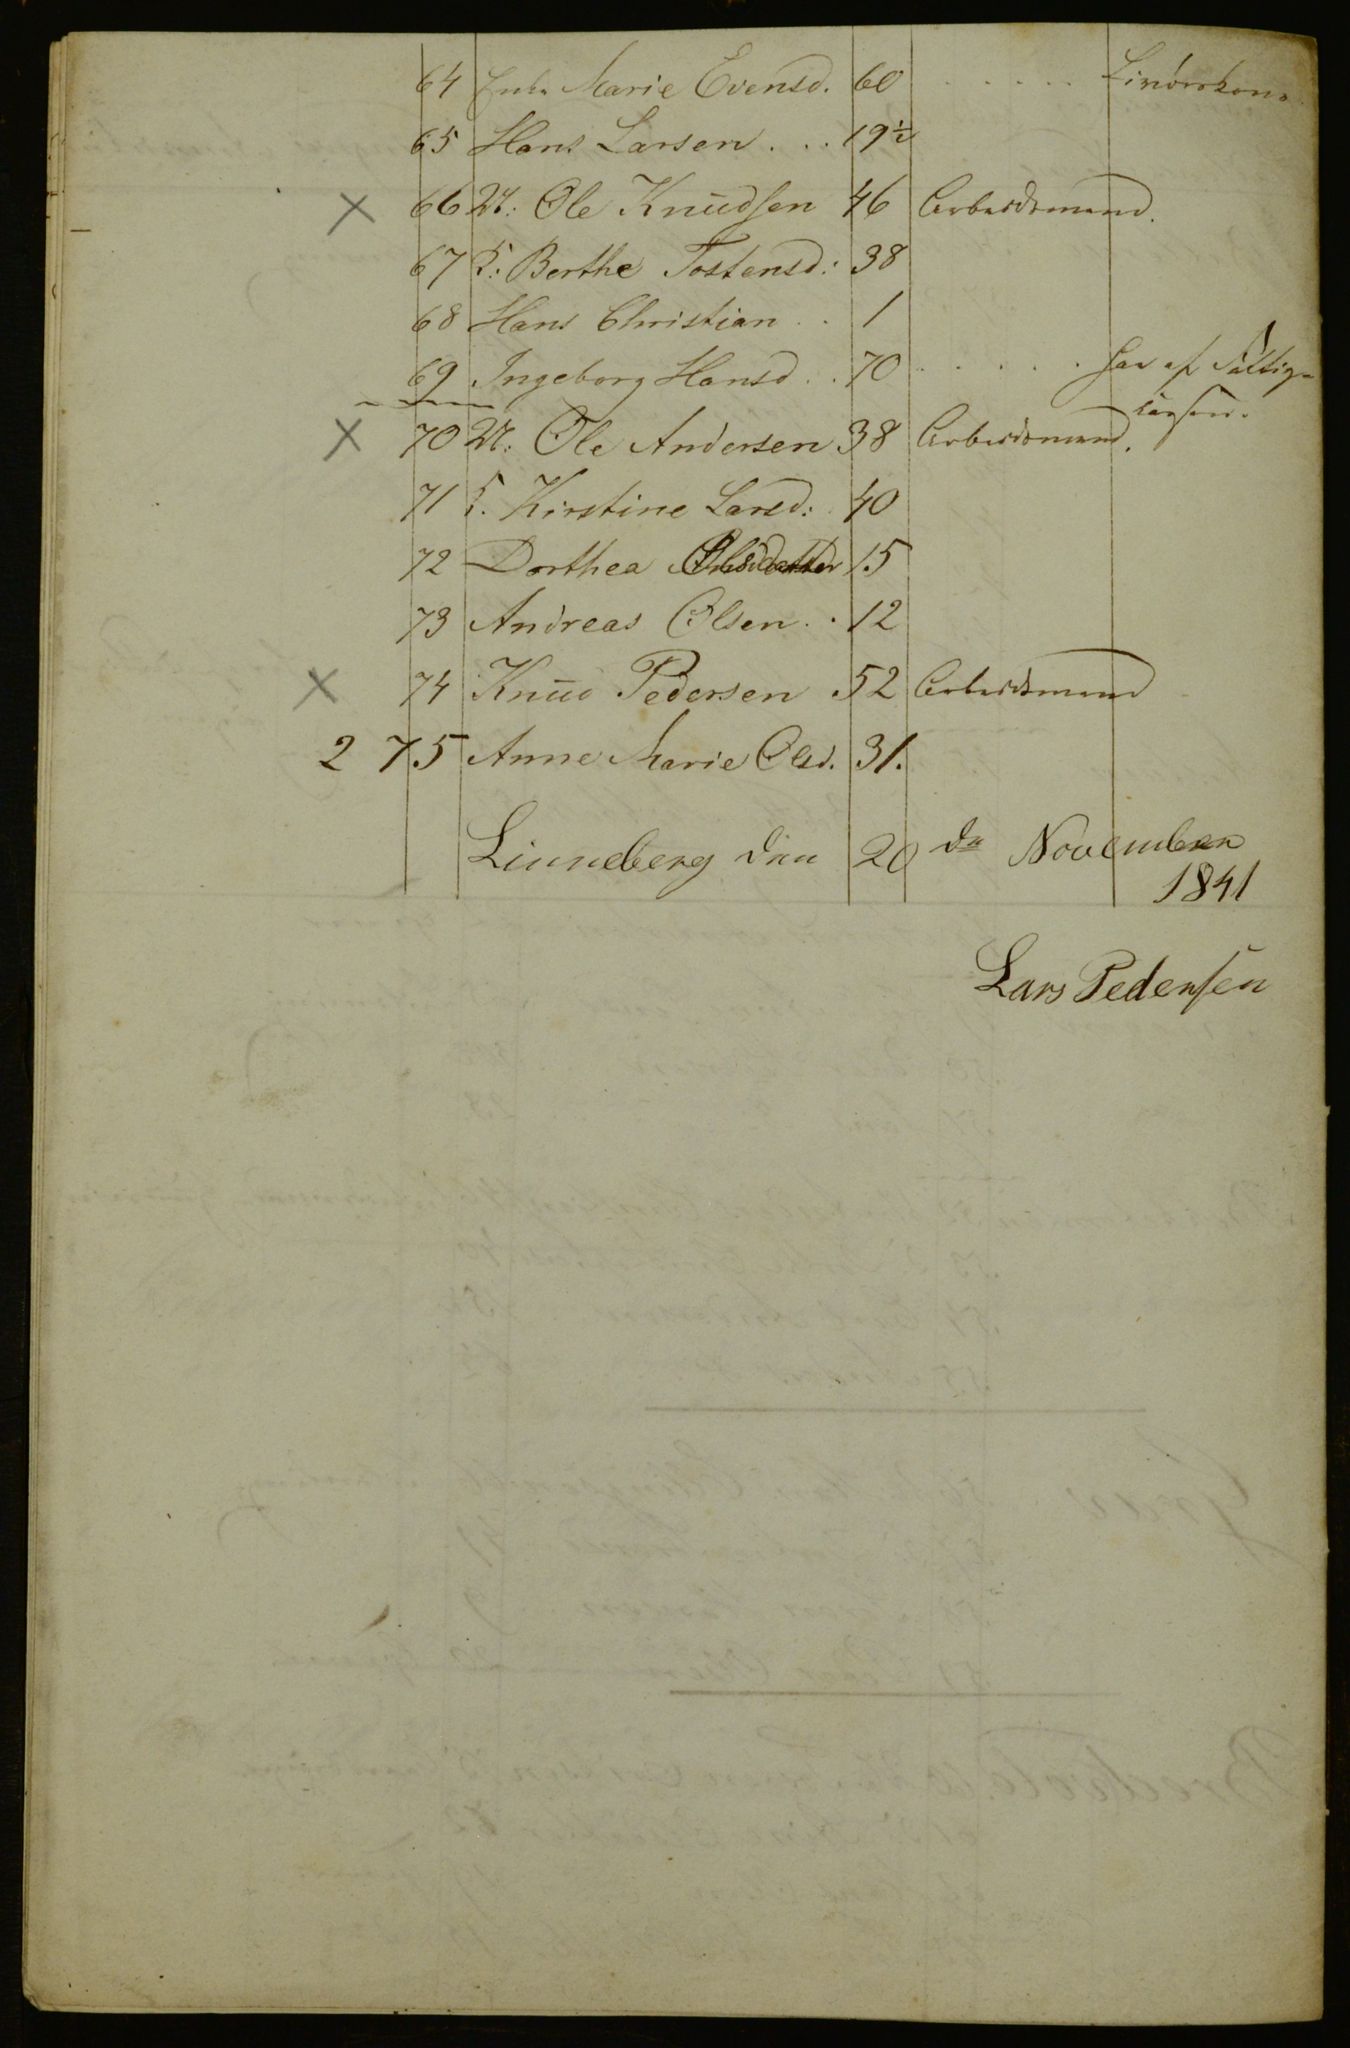 64 Enke Marie Evensd. 60 . . . . . Livørekone
65 Hans Larsen . . . 19½
× 66 M: Ole Knudsen 46 Arbeidsmand.
67 K: Berthe Tostensd: 38
68 Hans Christian . . 1
69 Ingeborg Hansd . . 70 . . . . . har af Fattig-
kassen.
× 70 M: Ole Andersen 38 Arbeidsmand.
71 K. Kirstine Larsd: 40
72 Dorthea Olsdatter 15
73 Andreas Olsen . . 12
× 74 Knud Pedersen . 52 Arbeidsmand
2 75 Anne Marie Olsd. 31.
Linneberg den 20 de November
1841
Lars Pedersen